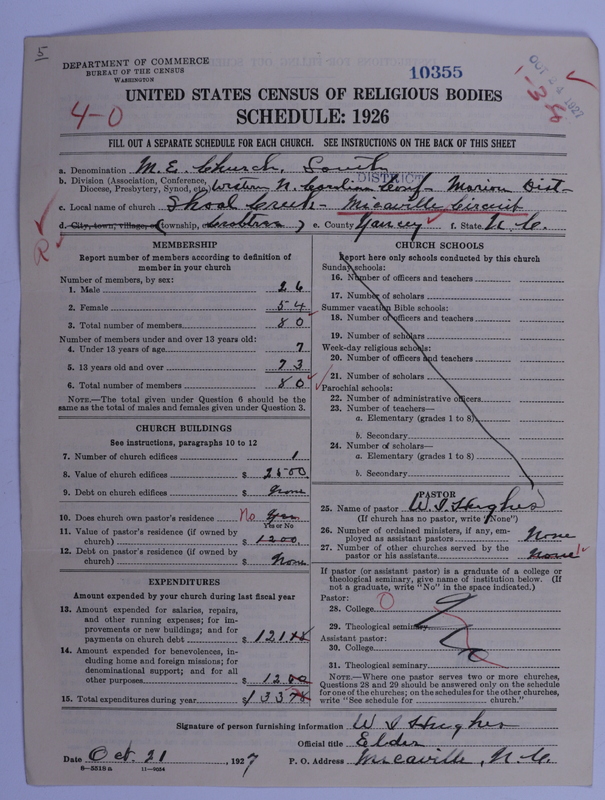 5
DEPARTMENT OF COMMERCE
BUREAU OF THE CENSUS
WASHINGTON
10355
OCT 24 1927
4-0
UNITED STATES CENSUS OF RELIGIOUS BODIES
SCHEDULE: 1926
FILL OUT A SEPARATE SCHEDULE FOR EACH CHURCH. SEE INSTRUCTIONS ON THE BACK OF THIS SHEET
a. Denomination M. E. Church, South
DISTRICT
b. Division (Association, Conference, Diocese, Presbytery, Synod, etc.) Western N. Carolina Conf- Marion Dist-
c. Local name of church Shoal Creek - Micaville Circuit
d. City, town, village, or (township, Crabtree) e. County Yancey f. State N. C.
R
MEMBERSHIP
Report number of members according to definition of
member in your church
Number of members, by sex:
1. Male 26
2. Female 54
3. Total number of members 80
Number of members under and over 13 years old:
4. Under 13 years of age 7
5. 13 years old and over 73
6. Total number of members 80
NOTE.—The total given under Question 6 should be the
same as the total of males and females given under Question 3.
CHURCH BUILDINGS
See instructions, paragraphs 10 to 12
7. Number of church edifices 1
8. Value of church edifices $ 2500
9. Debt on church edifices $ None
10. Does church own pastor's residence No Yes
Yes or No
11. Value of pastor's residence (if owned by
church) $ 1200
12. Debt on pastor's residence (if owned by
church) $ None
EXPENDITURES
Amount expended by your church during last fiscal year
13. Amount expended for salaries, repairs,
and other running expenses; for im-
provements or new buildings; and for
payments on church debt $ 121
14. Amount expended for benevolences, in-
cluding home and foreign missions; for
denominational support; and for all
other purposes $ 12.00
15. Total expenditures during year $ 133
CHURCH SCHOOLS
Report here only schools conducted by this church
Sunday schools:
16. Number of officers and teachers
17. Number of scholars
Summer vacation Bible schools:
18. Number of officers and teachers
19. Number of scholars
Week-day religious schools:
20. Number of officers and teachers
21. Number of scholars
Parochial schools:
22. Number of administrative officers
23. Number of teachers—
a. Elementary (grades 1 to 8)
b. Secondary
24. Number of scholars—
a. Elementary (grades 1 to 8)
b. Secondary
PASTOR
25. Name of pastor W. I. Hughes
(If church has no pastor, write "None")
26. Number of ordained ministers, if any, em-
ployed as assistant pastors None
27. Number of other churches served by the
pastor or his assistants None
If pastor (or assistant pastor) is a graduate of a college or
theological seminary, give name of institution below. (If
not a graduate, write "No" in the space indicated.)
Pastor:
28. College O
29. Theological seminary No
Assistant pastor:
30. College
31. Theological seminary
NOTE.—Where one pastor serves two or more churches,
Questions 28 and 29 should be answered only on the schedule
for one of the churches; on the schedules for the other churches,
write "See schedule for church."
Signature of person furnishing information W I Hughes
Official title Elder
Date Oct. 21, 1927 P. O. Address Micaville, N. C.
6-5519a 11-9084